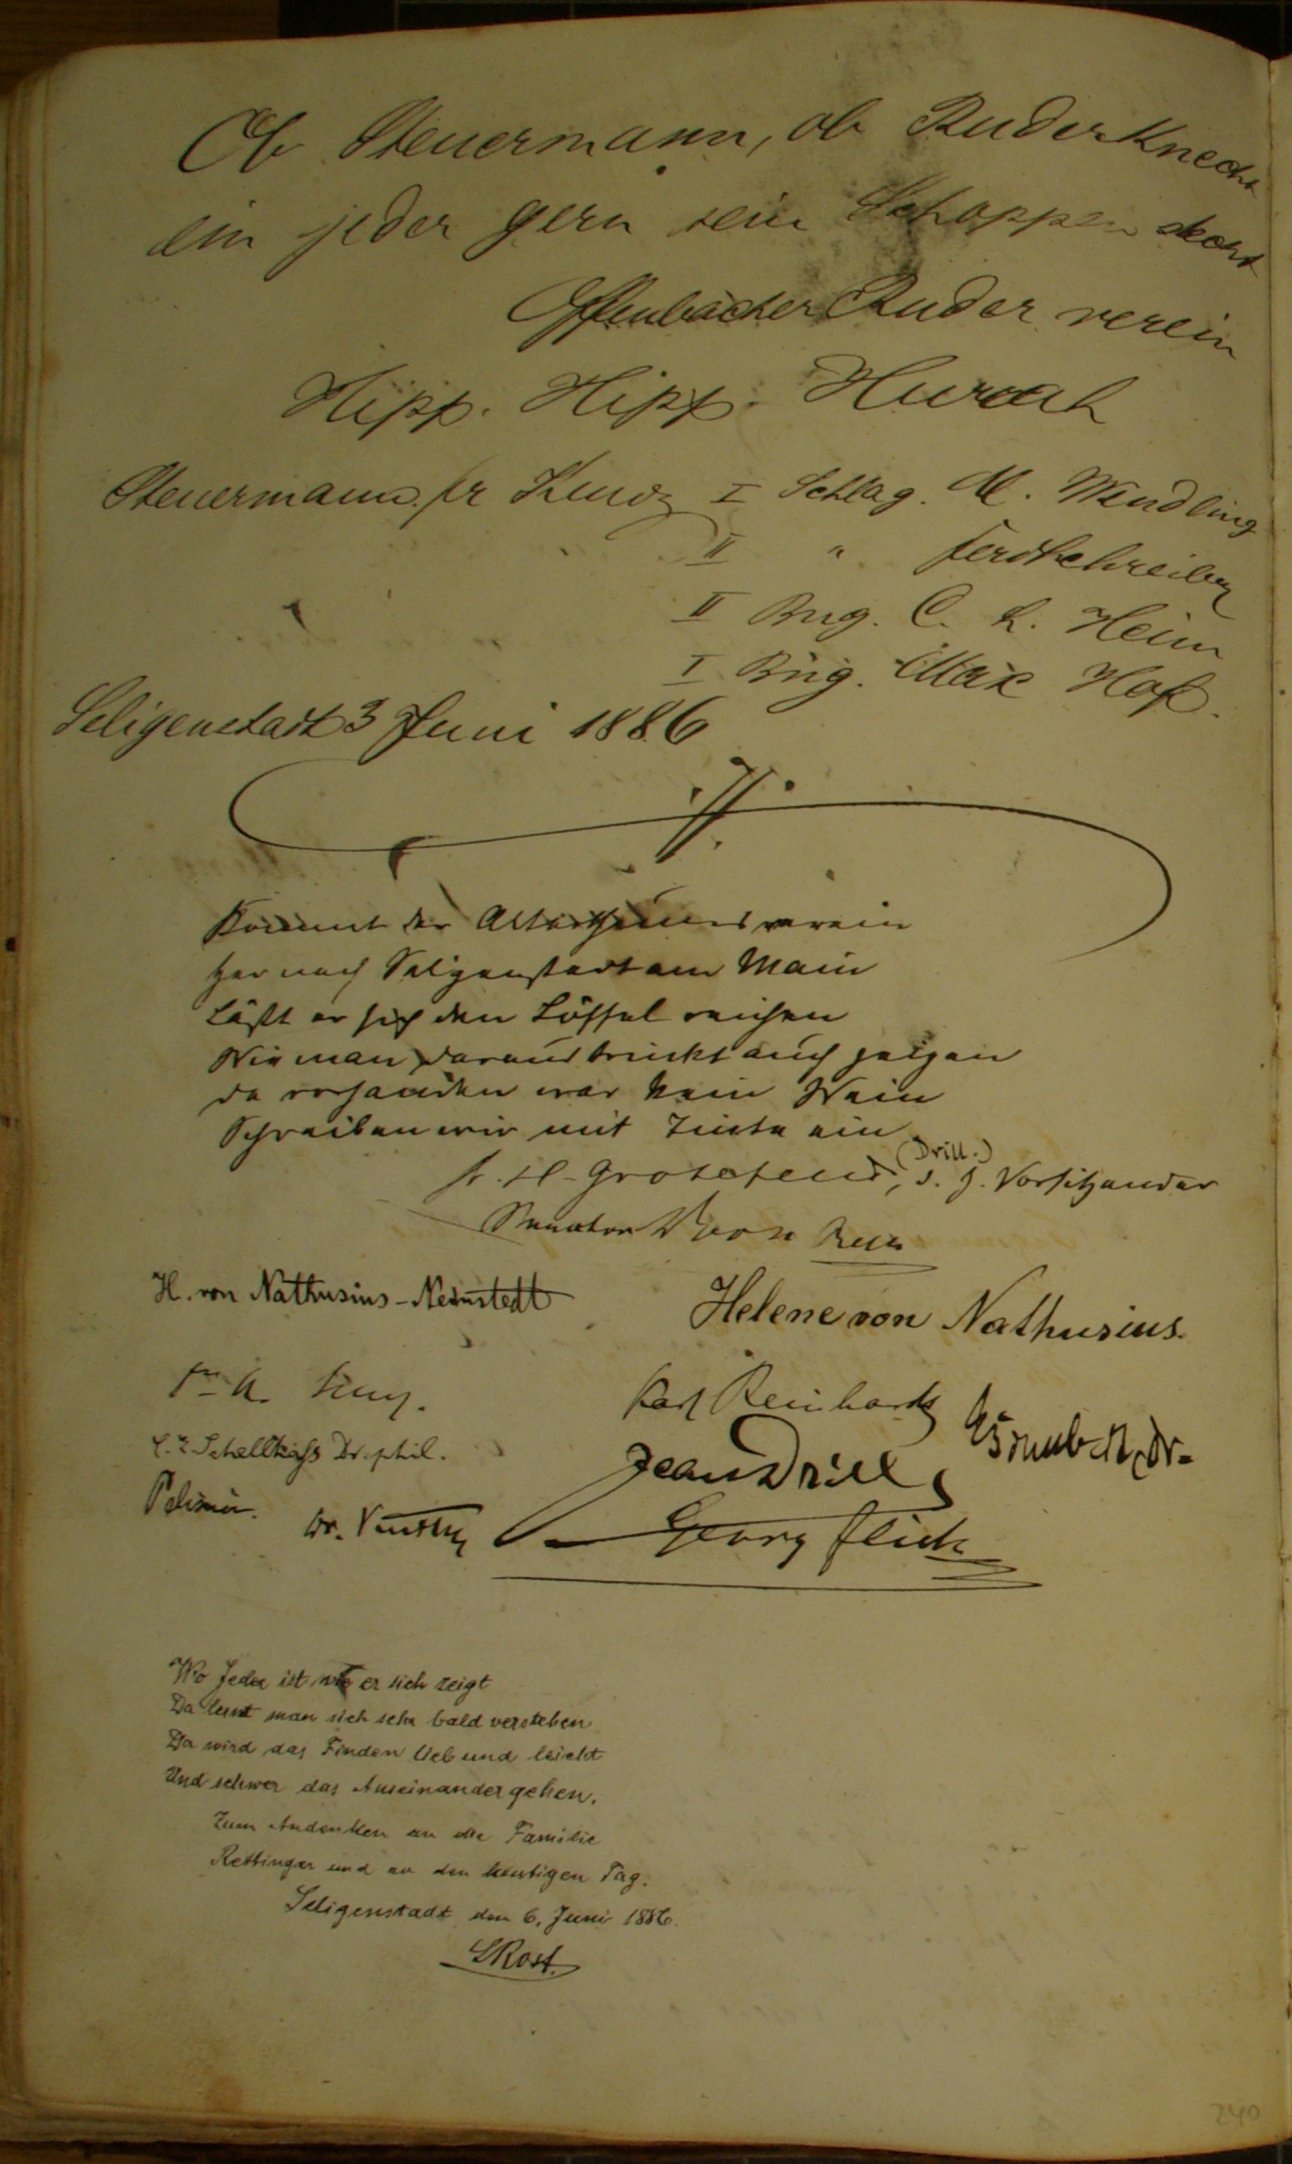 Ob Steuermann, ob Ruderknecht
ein jeder gern sein Schoppen
Offenbacher Ruder verein
Hipp. Hipp. Hurrah
Steuermann fr Kurz I Schlag. M. Wendling
II " Ferd Schreiber
II Bug. C. L. Heim
I Bug. Max Hof.
Seligenstadt 3 Juni 1886
Kommt der Alterthumsverein
her nach Seligenstadt am Main
Läßt er sich den Löffel reichen
Wie man daraus trinkt auch zeigen
da vorhanden war kein Wein
Schreiben wir mit Tinte ein
(Drill.)
Dr. H. Grotefend, d. Z. Vorsitzender
Senator
H. von Nathusius-Neinstedt Helene von Nathusius.
Karl Reinhardt
Schellhass Dr. phil. Jean Drill
Pelissier. Dr. Georg Flick
Wo Jeder ist wie er sich zeigt
Da lernt man sich sehr bald verstehen
Da wird das Finden lieb und leicht
Und schwer das Auseinandergehen.
Zum Andenken an die Familie
Rettinger und an den heutigen Tag.
Seligenstadt den 6. Juni 1886.
Rost.
240